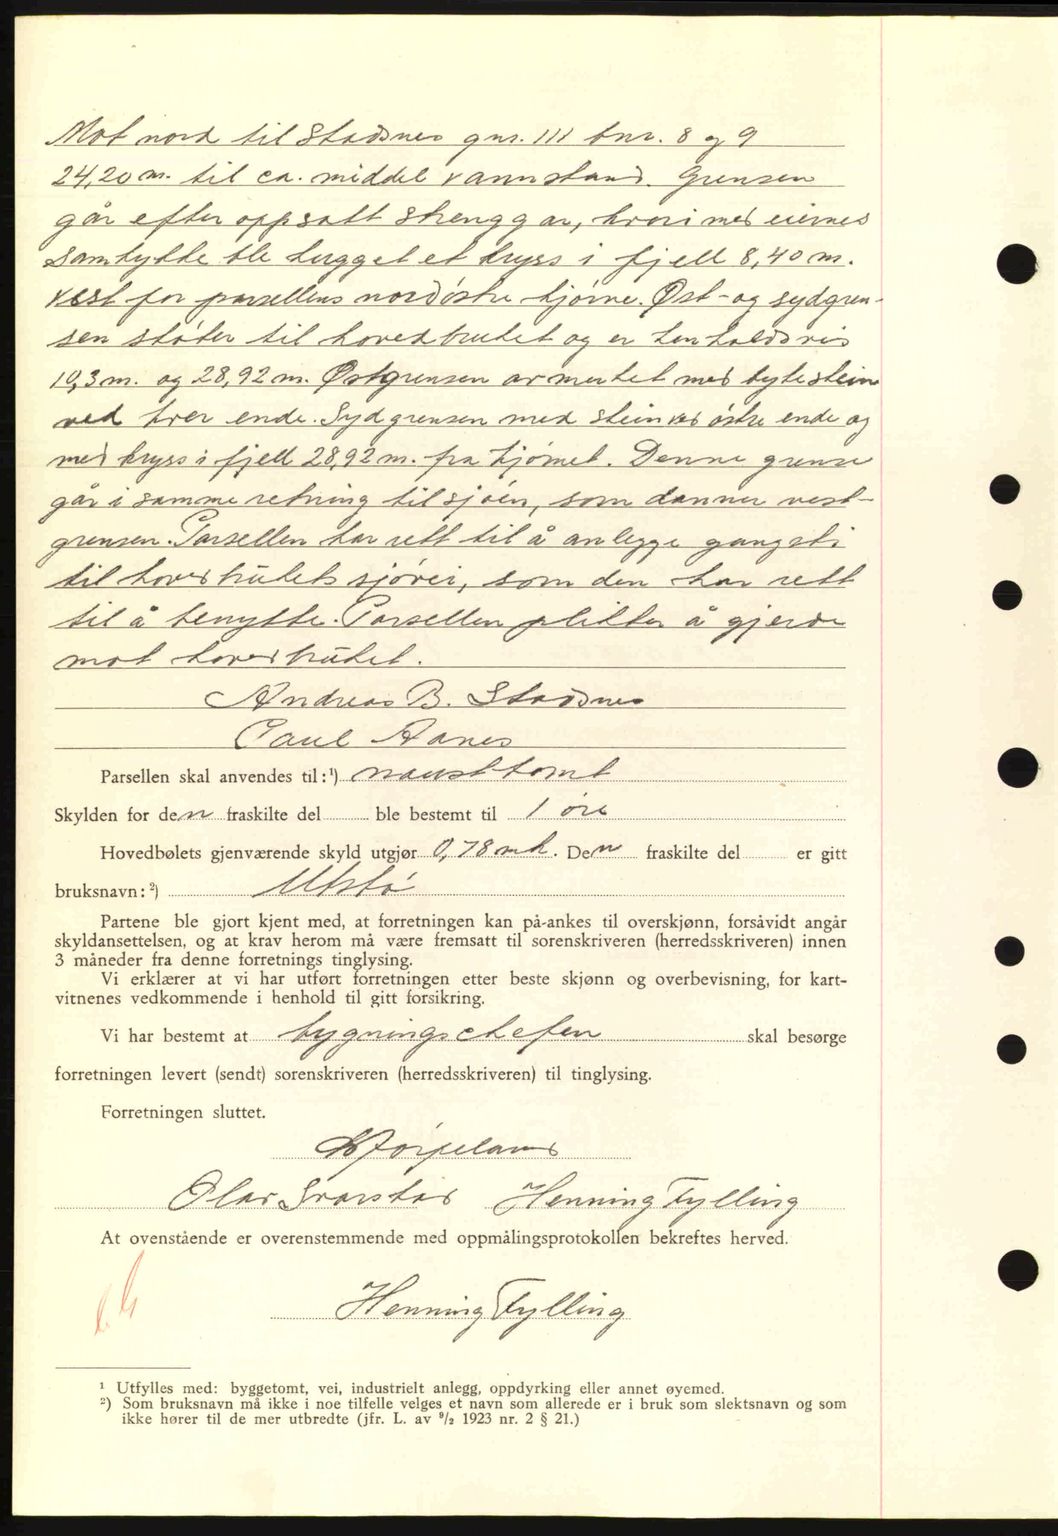 Mot nord til Stadsnes gnr. 111 bnr. 8 og 9
24,20 m. til ca. middel vannstand. Grensen
går efter oppsatt strenggar, hvori med eiernes
samtykke ble hugget et kryss i fjell 8,40 m.
vest for parsellens nordöstre hjörne. Öst- og sydgren-
sen stöter til hovedbruket og er henholdsvis
10,3 m. og 28,92 m. Östgrensen avmerket med bytestein
ved hver ende. Sydgrensen med stein ved östre ende og
med kryss i fjell 28,92 m. fra hjörnet. Denne grense
går i samme retning til sjöen, som danner vest-
grensen. Parsellen har rett til å anlegge gangsti
til hovedbrukets sjövei, som den har rett
til å benytte. Parsellen plikter å gjerde
mot hovedbruket.
Andreas B. Stadsnes
Paul Aanes
Parsellen skal anvendes til:¹) nausttomt
Skylden for den fraskilte del ble bestemt til 1 öre
Hovedbølets gjenværende skyld utgjør 0,78 mk. Den fraskilte del er gitt
bruksnavn:²) Utstö
Partene ble gjort kjent med, at forretningen kan på-ankes til overskjønn, forsåvidt angår
skyldansettelsen, og at krav herom må være fremsatt til sorenskriveren (herredsskriveren) innen
3 måneder fra denne forretnings tinglysing.
Vi erklærer at vi har utført forretningen etter beste skjønn og overbevisning, for kart-
vitnenes vedkommende i henhold til gitt forsikring.
Vi har bestemt at bygningschefen skal besørge
forretningen levert (sendt) sorenskriveren (herredsskriveren) til tinglysing.
Forretningen sluttet.
Jörpeland
Olav Svarstad Henning Fylling
At ovenstående er overenstemmende med oppmålingsprotokollen bekreftes herved.
Henning Fylling
¹ Utfylles med: byggetomt, vei, industrielt anlegg, oppdyrking eller annet øyemed.
²) Som bruksnavn må ikke i noe tilfelle velges et navn som allerede er i bruk som slektsnavn og som
ikke hører til de mer utbredte (jfr. L. av 9/2 1923 nr. 2 § 21.)